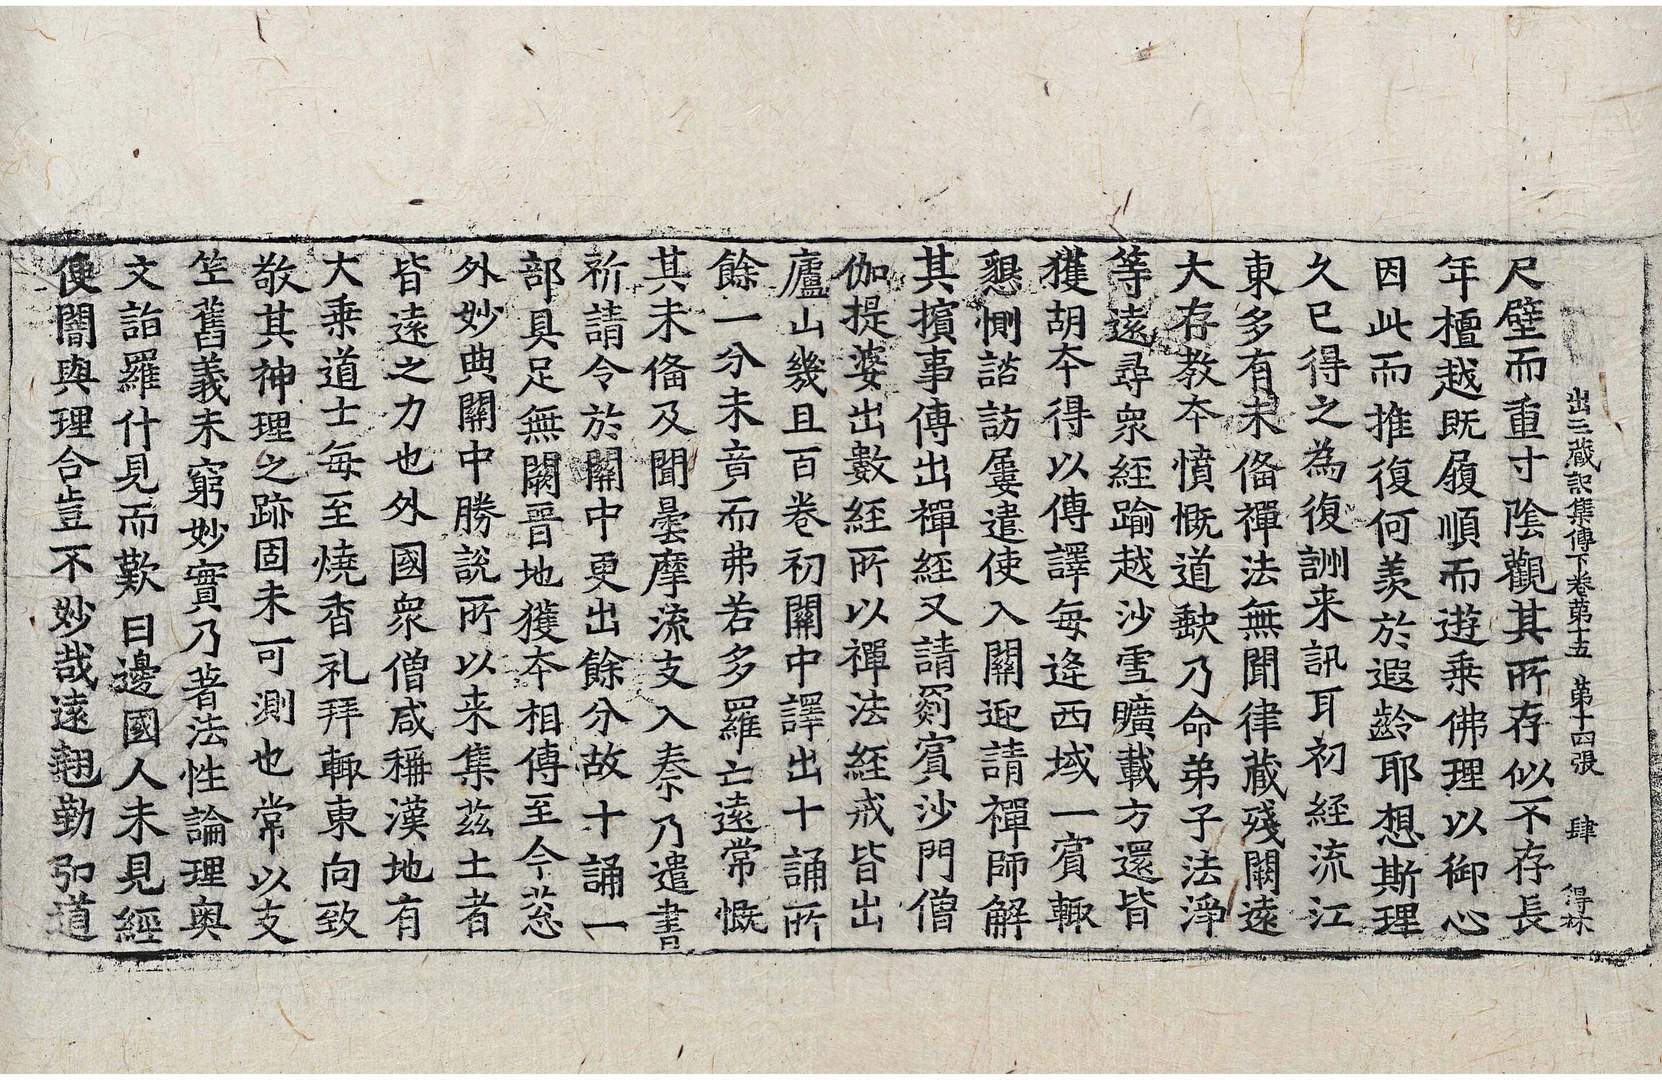 出三藏記集傳下卷第十五 第十四張 肆 得林
尺璧而重寸陰觀其所存似不存長
年檀越旣履順而遊乗佛理以御心
因此而推復何羡於遐齡耶想斯理
久已得之為復詶来訊耳初經流江
東多有未俻禪法無聞律藏殘闕遠
大存教夲憤慨道缺乃命弟子法淨
等遠尋衆經踰越沙雪曠載方還皆
獲胡夲得以傳譯每逢西域一賔輙
懇惻諮訪屢遣使入關迎請禪師解
其擯事傳出禪經又請罽賔沙門僧
伽提婆出數經所以禪法經戒皆出
廬山幾且百卷初關中譯出十誦所
餘一分未竟而弗若多羅亡遠常慨
其未俻及聞曇摩流支入秦乃遣書
祈請令於關中更出餘分故十誦一
部具足無闕晋地獲夲相傳至今葱
外妙典關中勝說所以来集茲土者
皆遠之力也外國衆僧咸稱漢地有
大乗道士每至燒香礼拜輙東向致
敬其神理之跡固未可測也常以支
竺舊義未窮妙實乃著法性論理奥
文詣羅什見而歎曰邊國人未見經
便闇與理合豈不妙哉遠翹勤弘道